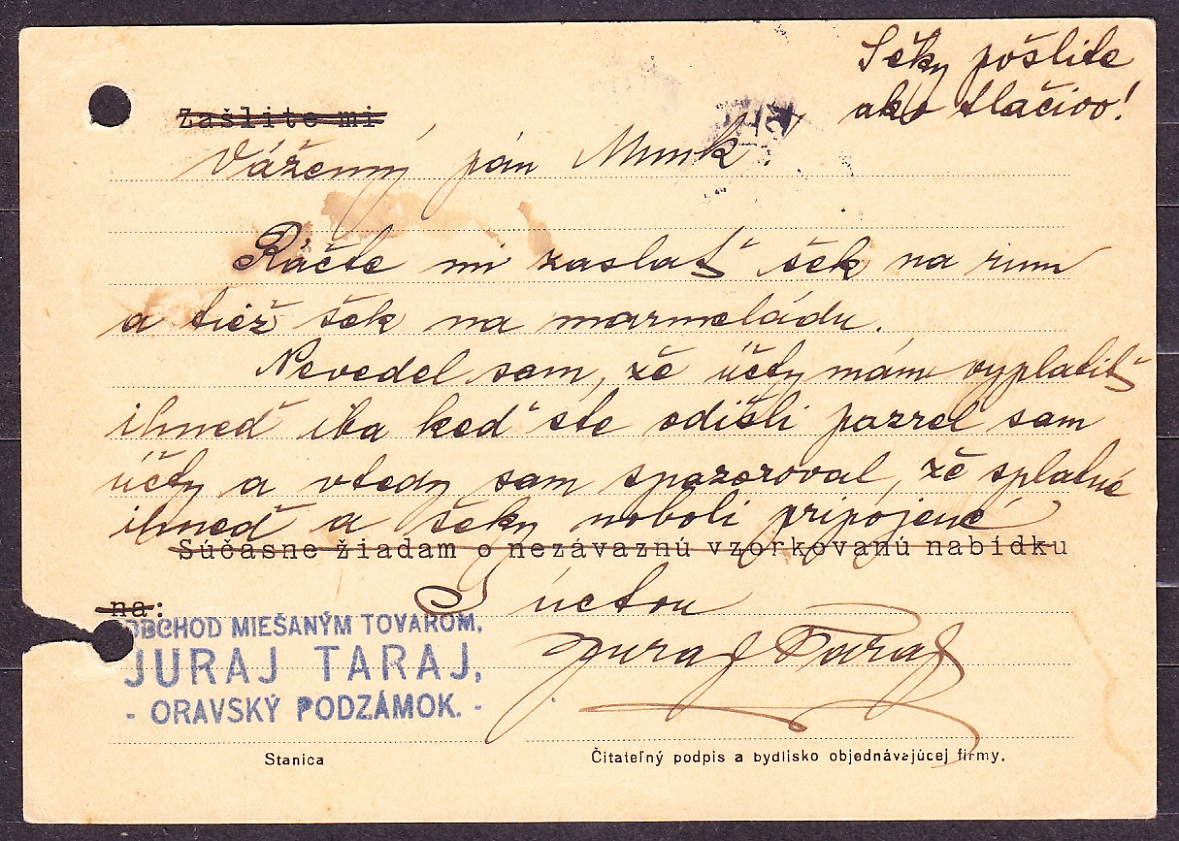 Šeky pošlite
ako tlačivo!
Zašlite mi
Vážený pán Munk
Ráčte mi zaslať šek na rum
a tiež šek na marmeládu.
Nevedel sam, že účty mám vyplatiť
ihneď iba keď ste odišli pozrel sam
účty a vtedy sam spozoroval, že splatné
ihneď a šeky neboli pripojené
Súčasne žiadam o nezávaznú vzorkovanú nabídku
na:
S úctou
OBCHOD MIEŠANÝM TOVAROM,
JURAJ TARAJ,
- ORAVSKÝ PODZÁMOK. -
Juraj Taraj
Stanica
Čitateľný podpis a bydlisko objednávajúcej firmy.